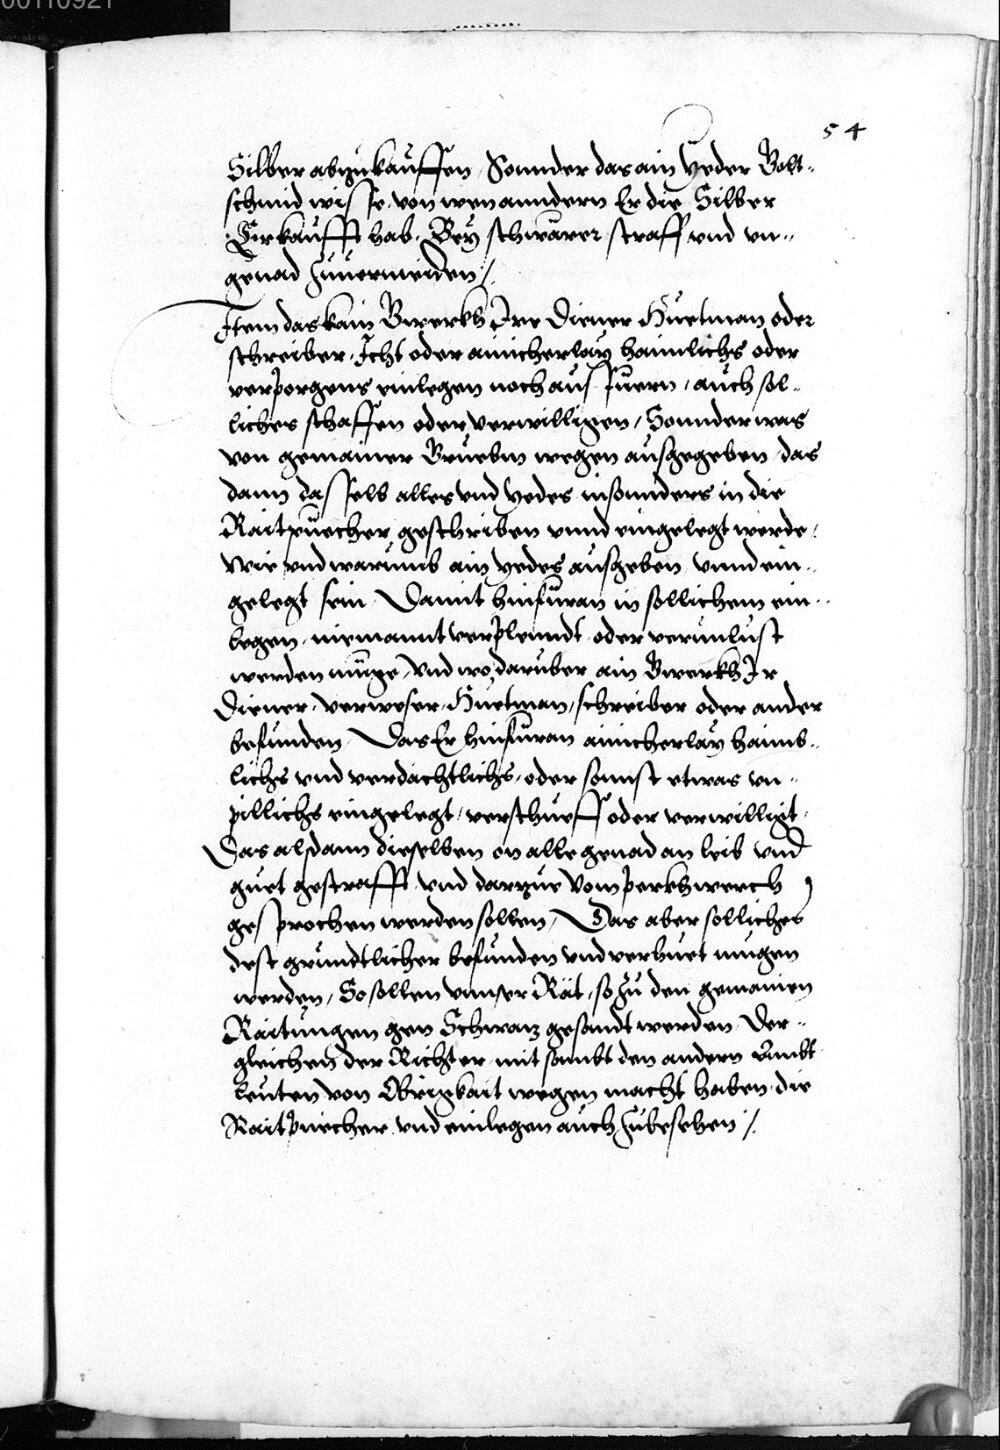 00110921
54
Silber abzukauffen, Sonnder das ain yeder Golt-
schmid wisse, von wem anndern Er die Silber
Erkaufft hab, Bey schwärer straff vnd vn-
genad zuuermeiden /.
Item das kain Gwerkh Irer Diener Huetman oder
schreiber, Icht oder ainicherlay haimlichs oder
verporgens einlegen noch ausfuern, auch sol-
liches schaffen oder verwilligen, Sonnder was
von gemainer Grueben wegen ausgegeben, das
dann dasselb alles vnd yedes insonnders in die
Raitpuecher geschriben vnnd eingelegt werde,
Wie vnd warumb ain yedes ausgeben vnnd ein-
gelegt sein. Damit hinfuran in sollichem ein-
legen, niemannt verplenndt oder verunlust
werden müge, Vnd wo daruber ain Gwerkh Ir
Diener, verweser, Huetman, schreiber oder ander
befunden, Das Er hinfuran ainicherlay haimb-
lichs vnd verdächtlichs, oder sonnst etwas vn-
pillichs eingelegt, verschueff oder verwilligt,
Das alsdann dieselben on alle genad an leib vnd
guet gestrafft vnd darzue vom perkhwerch
gesprochen werden sollen, Das aber solliches
dest gründtlicher befunden vnd verhuet mugen
werden, So sollen vnnser Rät, so zu den gemainen
Raitungen gen Schwaz gesandt werden, Der-
gleichen der Richter mit sambt den andern Ambt
leuten von Obrigkait wegen macht haben, die
Raitpuecher vnd einlegen auch zubesehen /.